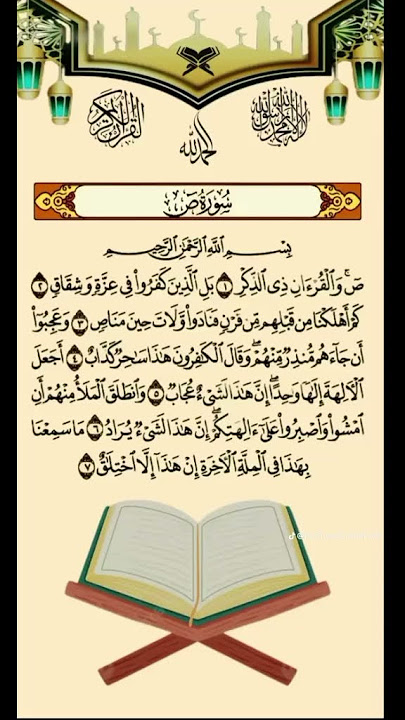 القرآن الكريم
الحمد لله
لا إله إلا الله محمد رسول الله
سُورَةُ صٓ
بِسْمِ ٱللَّهِ ٱلرَّحْمَٰنِ ٱلرَّحِيمِ
صٓۚ وَٱلْقُرْءَانِ ذِى ٱلذِّكْرِ ١ بَلِ ٱلَّذِينَ كَفَرُوا۟ فِى عِزَّةٍ وَشِقَاقٍ ٢
كَمْ أَهْلَكْنَا مِن قَبْلِهِم مِّن قَرْنٍ فَنَادَوا۟ وَّلَاتَ حِينَ مَنَاصٍ ٣ وَعَجِبُوٓا۟
أَن جَآءَهُم مُّنذِرٌ مِّنْهُمْۖ وَقَالَ ٱلْكَٰفِرُونَ هَٰذَا سَٰحِرٌ كَذَّابٌ ٤ أَجَعَلَ
ٱلْءَالِهَةَ إِلَٰهًا وَٰحِدًاۖ إِنَّ هَٰذَا لَشَىْءٌ عُجَابٌ ٥ وَٱنطَلَقَ ٱلْمَلَأُ مِنْهُمْ أَنِ
ٱمْشُوا۟ وَٱصْبِرُوا۟ عَلَىٰٓ ءَالِهَتِكُمْۖ إِنَّ هَٰذَا لَشَىْءٌ يُرَادُ ٦ مَا سَمِعْنَا
بِهَٰذَا فِى ٱلْمِلَّةِ ٱلْءَاخِرَةِ إِنْ هَٰذَآ إِلَّا ٱخْتِلَٰقٌ ٧